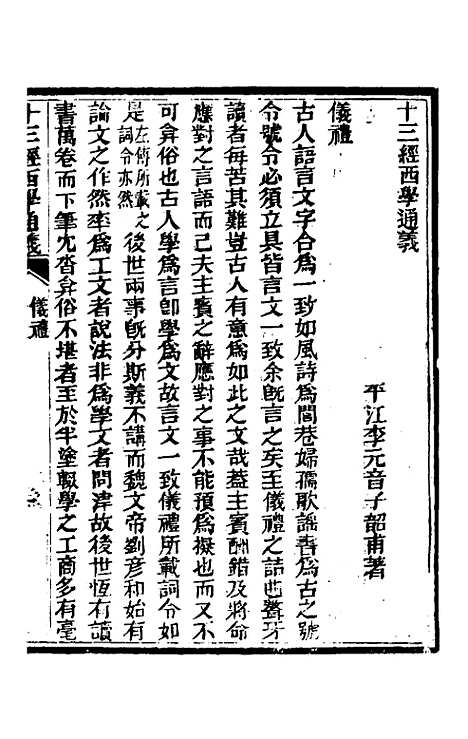 十三經西學通義
平江李元音子韶甫著
儀禮
古人語言文字合為一致如風詩為閭巷婦孺歌謠書為古之號
令號令必須立具皆言文一致余旣言之矣至儀禮之詰屈聱牙
讀者每苦其難豈古人有意為如此之文哉蓋主賓酬錯及將命
應對之言語而已夫主賓之辭應對之事不能預為擬也而又不
可弇俗也古人學為言卽學為文故言文一致儀禮所載詞令如
是左傳所載之詞令亦然後世兩事旣分斯義不講而魏文帝劉彥和始有
論文之作然率為工文者說法非為學文者問津故後世恆有讀
書萬卷而下筆冗沓弇俗不堪者至於半塗輟學之工商多有毫
十三經西學通義
儀禮